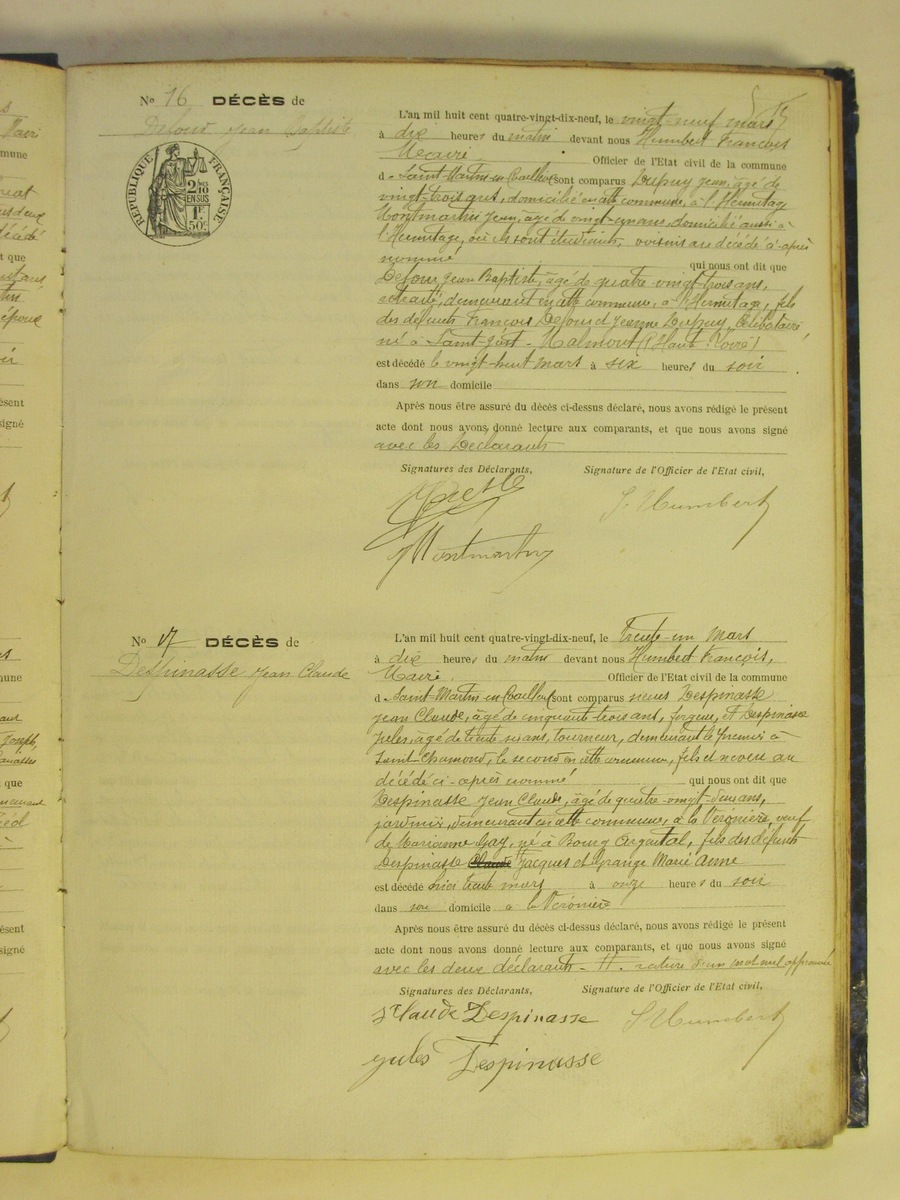 15
No 16 DÉCÈS de
Defour Jean Baptiste
RÉPUBLIQUE FRANÇAISE
2/10 EN SUS
1F 50c
L'an mil huit cent quatre-vingt-dix-neuf, le vingt-neuf mars
à dix heures du matin devant nous Humbert François
Maire Officier de l'Etat civil de la commune
d Saint-Martin-en-Coailleux sont comparus Dupuy Jean, âgé de
vingt-trois ans, domicilié en cette commune, à l'Hermitage
Montmartin Jean, âgé de vingt-un ans, domicilié aussi à
l'Hermitage, où ils sont étudiants, voisins au décédé ci-après
nommé qui nous ont dit que
Defour Jean Baptiste, âgé de quatre-vingt-trois ans,
retraité, demeurant en cette commune, à l'Hermitage, fils
des défunts François Defour et Jeanne Dupuy, Célibataire
né à Saint-Just-Malmont (Haute Loire)
est décédé le vingt-huit mars à six heures du soir
dans son domicile
Après nous être assuré du décès ci-dessus déclaré, nous avons rédigé le présent
acte dont nous avons donné lecture aux comparants, et que nous avons signé
avec les Déclarants
Signatures des Déclarants, Signature de l'Officier de l'Etat civil,
F. Humbert
J Montmartin
No 17 DÉCÈS de
Despinasse Jean Claude
L'an mil huit cent quatre-vingt-dix-neuf, le Trente-un Mars
à dix heures du matin devant nous Humbert François,
Maire Officier de l'Etat civil de la commune
d Saint-Martin-en-Coailleux sont comparus Despinasse
Jean Claude, âgé de cinquante trois ans, forgeur, et Despinasse
Jules, âgé de trente six ans, tourneur, demeurant le premier à
Saint-Chamond, le second en cette commune, fils et neveu au
décédé ci-après nommé qui nous ont dit que
Despinasse Jean Claude, âgé de quatre-vingt-deux ans,
jardinier, demeurant en cette commune, à la Véronière, veuf
de Marianne Gay, né à Bourg Argental, fils des défunts
Despinasse Claude Jacques et Grange Marie Anne
est décédé hier trente mars à onze heures du soir
dans son domicile à la Véronière
Après nous être assuré du décès ci-dessus déclaré, nous avons rédigé le présent
acte dont nous avons donné lecture aux comparants, et que nous avons signé
avec les deux déclarants - rature d'un mot nul approuvée
Signatures des Déclarants, Signature de l'Officier de l'Etat civil,
J Claude Despinasse F. Humbert
Jules Despinasse